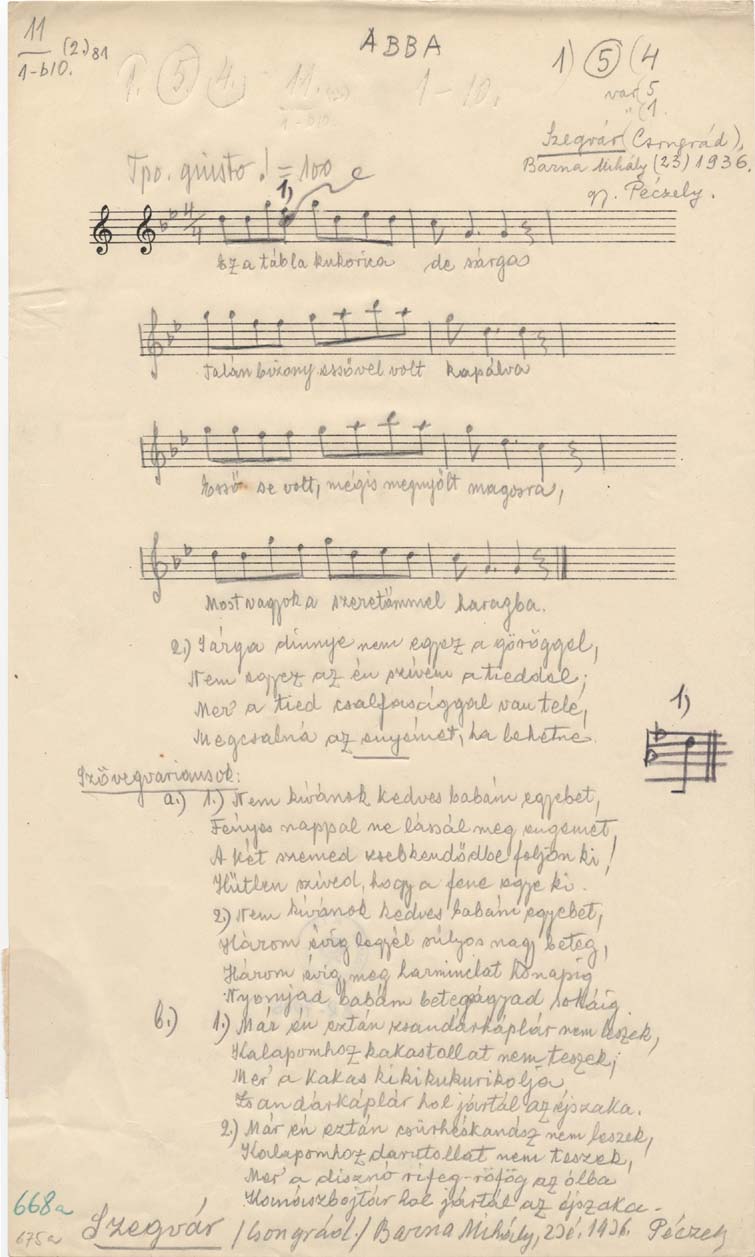 11
1-b10. (2.) 81
ABBA
1) 5 (4
var. (5
" (1.
1. 5 4. 11. 1-10.
1-b10.
Szegvár (Csongrád),
Barna Mihály (23) 1936.
gy. Péczely.
Tpo. giusto ♩=100
1)
4/4
Ez a tábla kukorica de sárga
Talán bizony essővel volt kapálva
Esső se volt, mégis megnyőlt magosra,
Most vagyok a szeretőmmel haragba.
2.) Sárga dinnye nem egyez a göröggel,
Nem egyez az én szívem a tieddel;
Mer' a tied csalfasággal van tele,
Megcsalná az enyémet, ha lehetne.
1)
Szövegvariánsok:
a.) 1.) Nem kívánok kedves babám egyebet,
Fényes nappal ne lássál meg engemet,
A két szemed zsebkendődbe foljon ki!
Hűtlen szíved, hogy a fene egye ki.
2.) Nem kívánok kedves babám egyebet,
Három évig legyél súlyos nagy beteg,
Három évig, meg harminchat hónapig
Nyomjad babám betegágyad sokáig.
b.) 1.) Már én eztán zsandárkáplár nem leszek,
Kalapomhoz kakastollat nem teszek;
Mer' a kakas kikikukurikolja
Zsandárkáplár hol jártál az éjszaka.
2.) Már én eztán csürhéskanász nem leszek,
Kalapomhoz darutollat nem teszek,
Mer' a disznó röfög-röfög az ólba
Kanászbojtár hol jártál az éjszaka.
668a
675a Szegvár /Csongrád./ Barna Mihály, 23é. 1936. Péczely